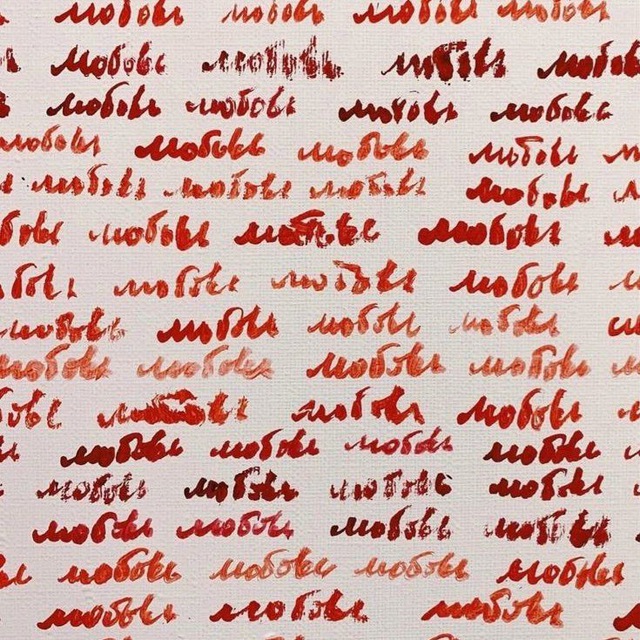 любовь любовь любовь любовь
любовь любовь любовь любовь
любовь любовь любовь любовь
любовь любовь любовь любовь
любовь любовь любовь любовь
любовь любовь любовь любовь
любовь любовь любовь любовь
любовь любовь любовь любовь
любовь любовь любовь любовь
любовь любовь любовь любовь
любовь любовь любовь любовь
любовь любовь любовь любовь
любовь любовь любовь любовь
любовь любовь любовь любовь
любовь любовь любовь